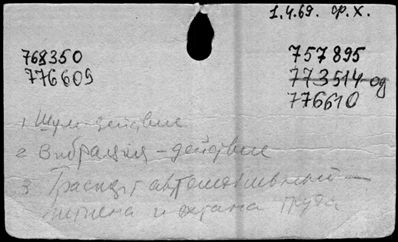 1.4.69. ф.х.
768350
776609
757895
773514 од
776610
1 Шум-действие
2 Вибрация – действие
3 Транспорт автомобильный –
гигиена и охрана труда